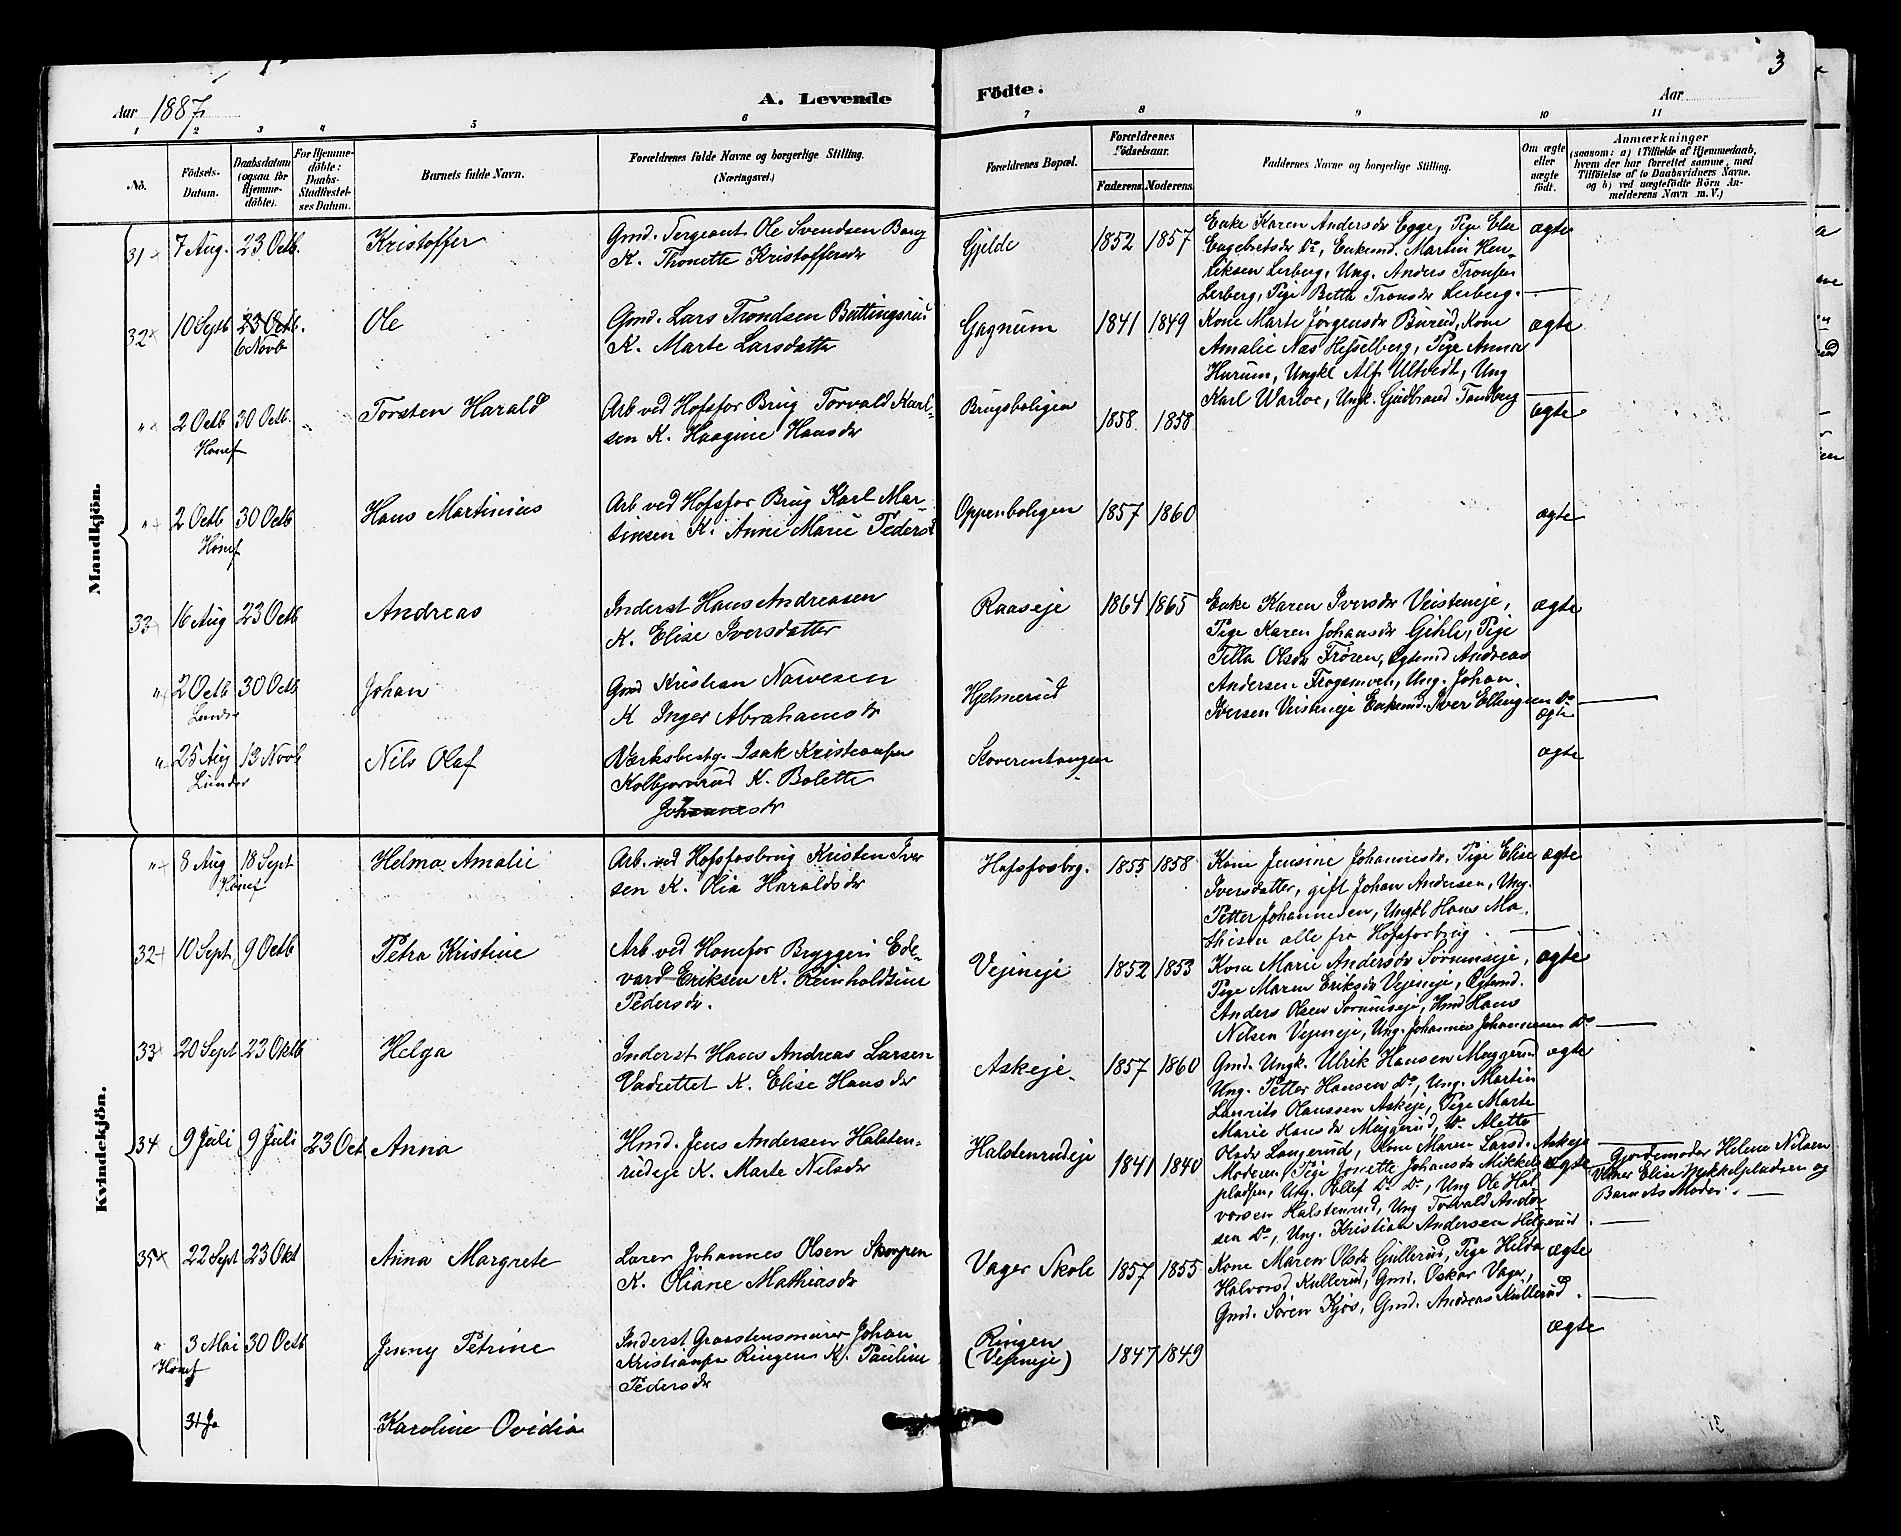 3
Aar 1887.
A. Levende Födte.
Aar
1 2 3 4 5 6 7 8 9 10 11
No.
Födsels-Datum.
Daabsdatum (ogsaa for Hjemme-döbte).
For Hjemme-döbte: Daabs-Stadfæstel-ses Datum.
Barnets fulde Navn.
Forældrenes fulde Navne og borgerlige Stilling. (Næringsvei.)
Forældrenes Bopæl.
Forældrenes Födselsaar.
Faderens. Moderens.
Faddernes Navne og borgerlige Stilling.
Om ægte eller uægte födt.
Anmærkninger
(saasom: a) i Tilfælde af Hjemmedaab,
hvem der har forrettet samme, med
Tilföielse af to Daabsvidners Navne,
og b) ved uægtefödte Börn An-
melderens Navn m. V.)
Mandkjön.
31 7 Aug. 23 Octb. Kristoffer
Gmd. Sergeant Ole Svendsen Berg
K. Thonette Kristoffersdr
Gjelde 1852 1857
Enke Karen Andersdr Egge, Pige Else
Engebretsdr Do, Enkemd. Martin Hen-
riksen Lerberg, Ung. Anders Tronsen
Lerberg, Pige Berthe Tronsdr Lerberg.
ægte
32 10 Septb 23 Octb. 6 Novb Ole
Gmd. Lars Trondsen Buttingsrud
K. Marte Larsdatter
Gagnum 1841 1849
Kone Marte Jørgensdr Burud, Kone
Amalie Næs Hesselberg, Pige Anna
Hurum, Ungkl Alf Ultvedt, Ung
Karl Warloe, Ungk. Gudbrand Tandberg
ægte
" 2 Octb Hønef 30 Octb. " Torsten Harald
Arb ved Hofsfos Brug Torvald Karl-
sen K. Haagine Hansdr
Brugsboligen 1858 1858 ægte
" 2 Octb Hønef 30 Octb Hans Martinius
Arb ved Hofsfos Brug Karl Mar-
tinsen K. Anne Marie Pedersd
Oppenboligen 1857 1860 ægte
33 16 Aug 23 Octb Andreas
Inderst Hans Andreasen
K. Elise Iversdatter
Raaseje 1864 1865
Enke Karen Iversdr Veisteneje,
Pige Karen Johansdr Gihle, Pige
Tilla Olsdr Frøren, Ægtemd Andreas
Andersen Frogsmoen, Ung. Johan
Iversen Veisteneje Enkemd. Iver Ellingsen Do
ægte
" 2 Octb Lunder 30 Octb Johan
Gmd Kristian Narvesen
K Inger Abrahamsdr
Hjelmerud ægte
" 25 Aug Lunder 13 Novb Nils Olaf
Værksbestyr. Isak Kristiansen
Kolbjørnrud K. Bolette
Johannesdr
Skoverentangen ægte
Kvindekjön.
" 8 Aug Hønef 18 Sept Helma Amalie
Arb. ved Hofsfosbrug Kristen Iver
sen K. Olia Haraldsdr
Hofsfosbrg. 1855 1858
Kone Jensine Johannesdr, Pige Elise
Iversdatter, gift Johan Andersen, Ung.
Petter Johannesen, Ungkl Hans Ma-
thisen alle fra Hofsfosbrug.
ægte
32 10 Sept 9 Octb Petra Kristine
Arb ved Hønefos Bryggeri Ed-
vard Eriksen K. Reinholdsine
Pedersdr.
Vejeneje 1852 1853
Kone Marie Andersdr Sørumseje,
Pige Maren Eriksdr Vejeneje, Ægtemd.
Anders Olsen Sørumseje, Hmd Hans
Nilsen Vejeneje, Ung. Johannes Johannesen Do
ægte
33 20 Sept 23 Oktb Helga
Inderst Hans Andreas Larsen
Vadrettet K. Elise Hansdr
Askeje 1857 1860
Gmd. Ungk. Ulrik Hansen Muggerud
Ung. Petter Hansen Do, Ung. Martin
Laurits Olaussen Askeje, Pige Marte
Marie Hansdr Muggerud, Do. Alette
Olsdr Langerud, Kone Maren Larsd. Askeje
ægte
34 9 Juli 9 Juli 23 Oct Anna
Hmd. Jens Andersen Halsten-
rudeje K. Marte Nilsdr
Halstenrudeje 1841 1840
Moderen, Pige Jonette Johansdr Mikkels
pladsen, Ung. Ollef Do Do, Ung Ole Hal
vorsen Halstenrud, Ung Torvald Ander
sen Do, Ung. Kristian Andersen Helgerud.
ægte
Gjordemoder Helene Nilsen
Vidner Elise Mykkelpladsen og
Barnets Moder.
35 22 Sept 23 Okt Anna Margrete
Lærer Johannes Olsen Skarpen
K. Oliane Mathiasdr
Vager Skole 1857 1855
Kone Maren Olsdr Gullerud, Pige Hilda
Halvorsd Kullerud, Gmd. Oskar Vager,
Gmd. Søren Kjøs, Gmd. Andreas Kullerud.
ægte
" 3 Mai Hønef 30 Octb Jenny Petrine
Inderst Graastensmurer Johan
Kristiansen Ringen K. Pauline
Pedersdr
Ringen
(Vejeneje) 1847 1849 ægte
31 Ja Karoline Ovidia